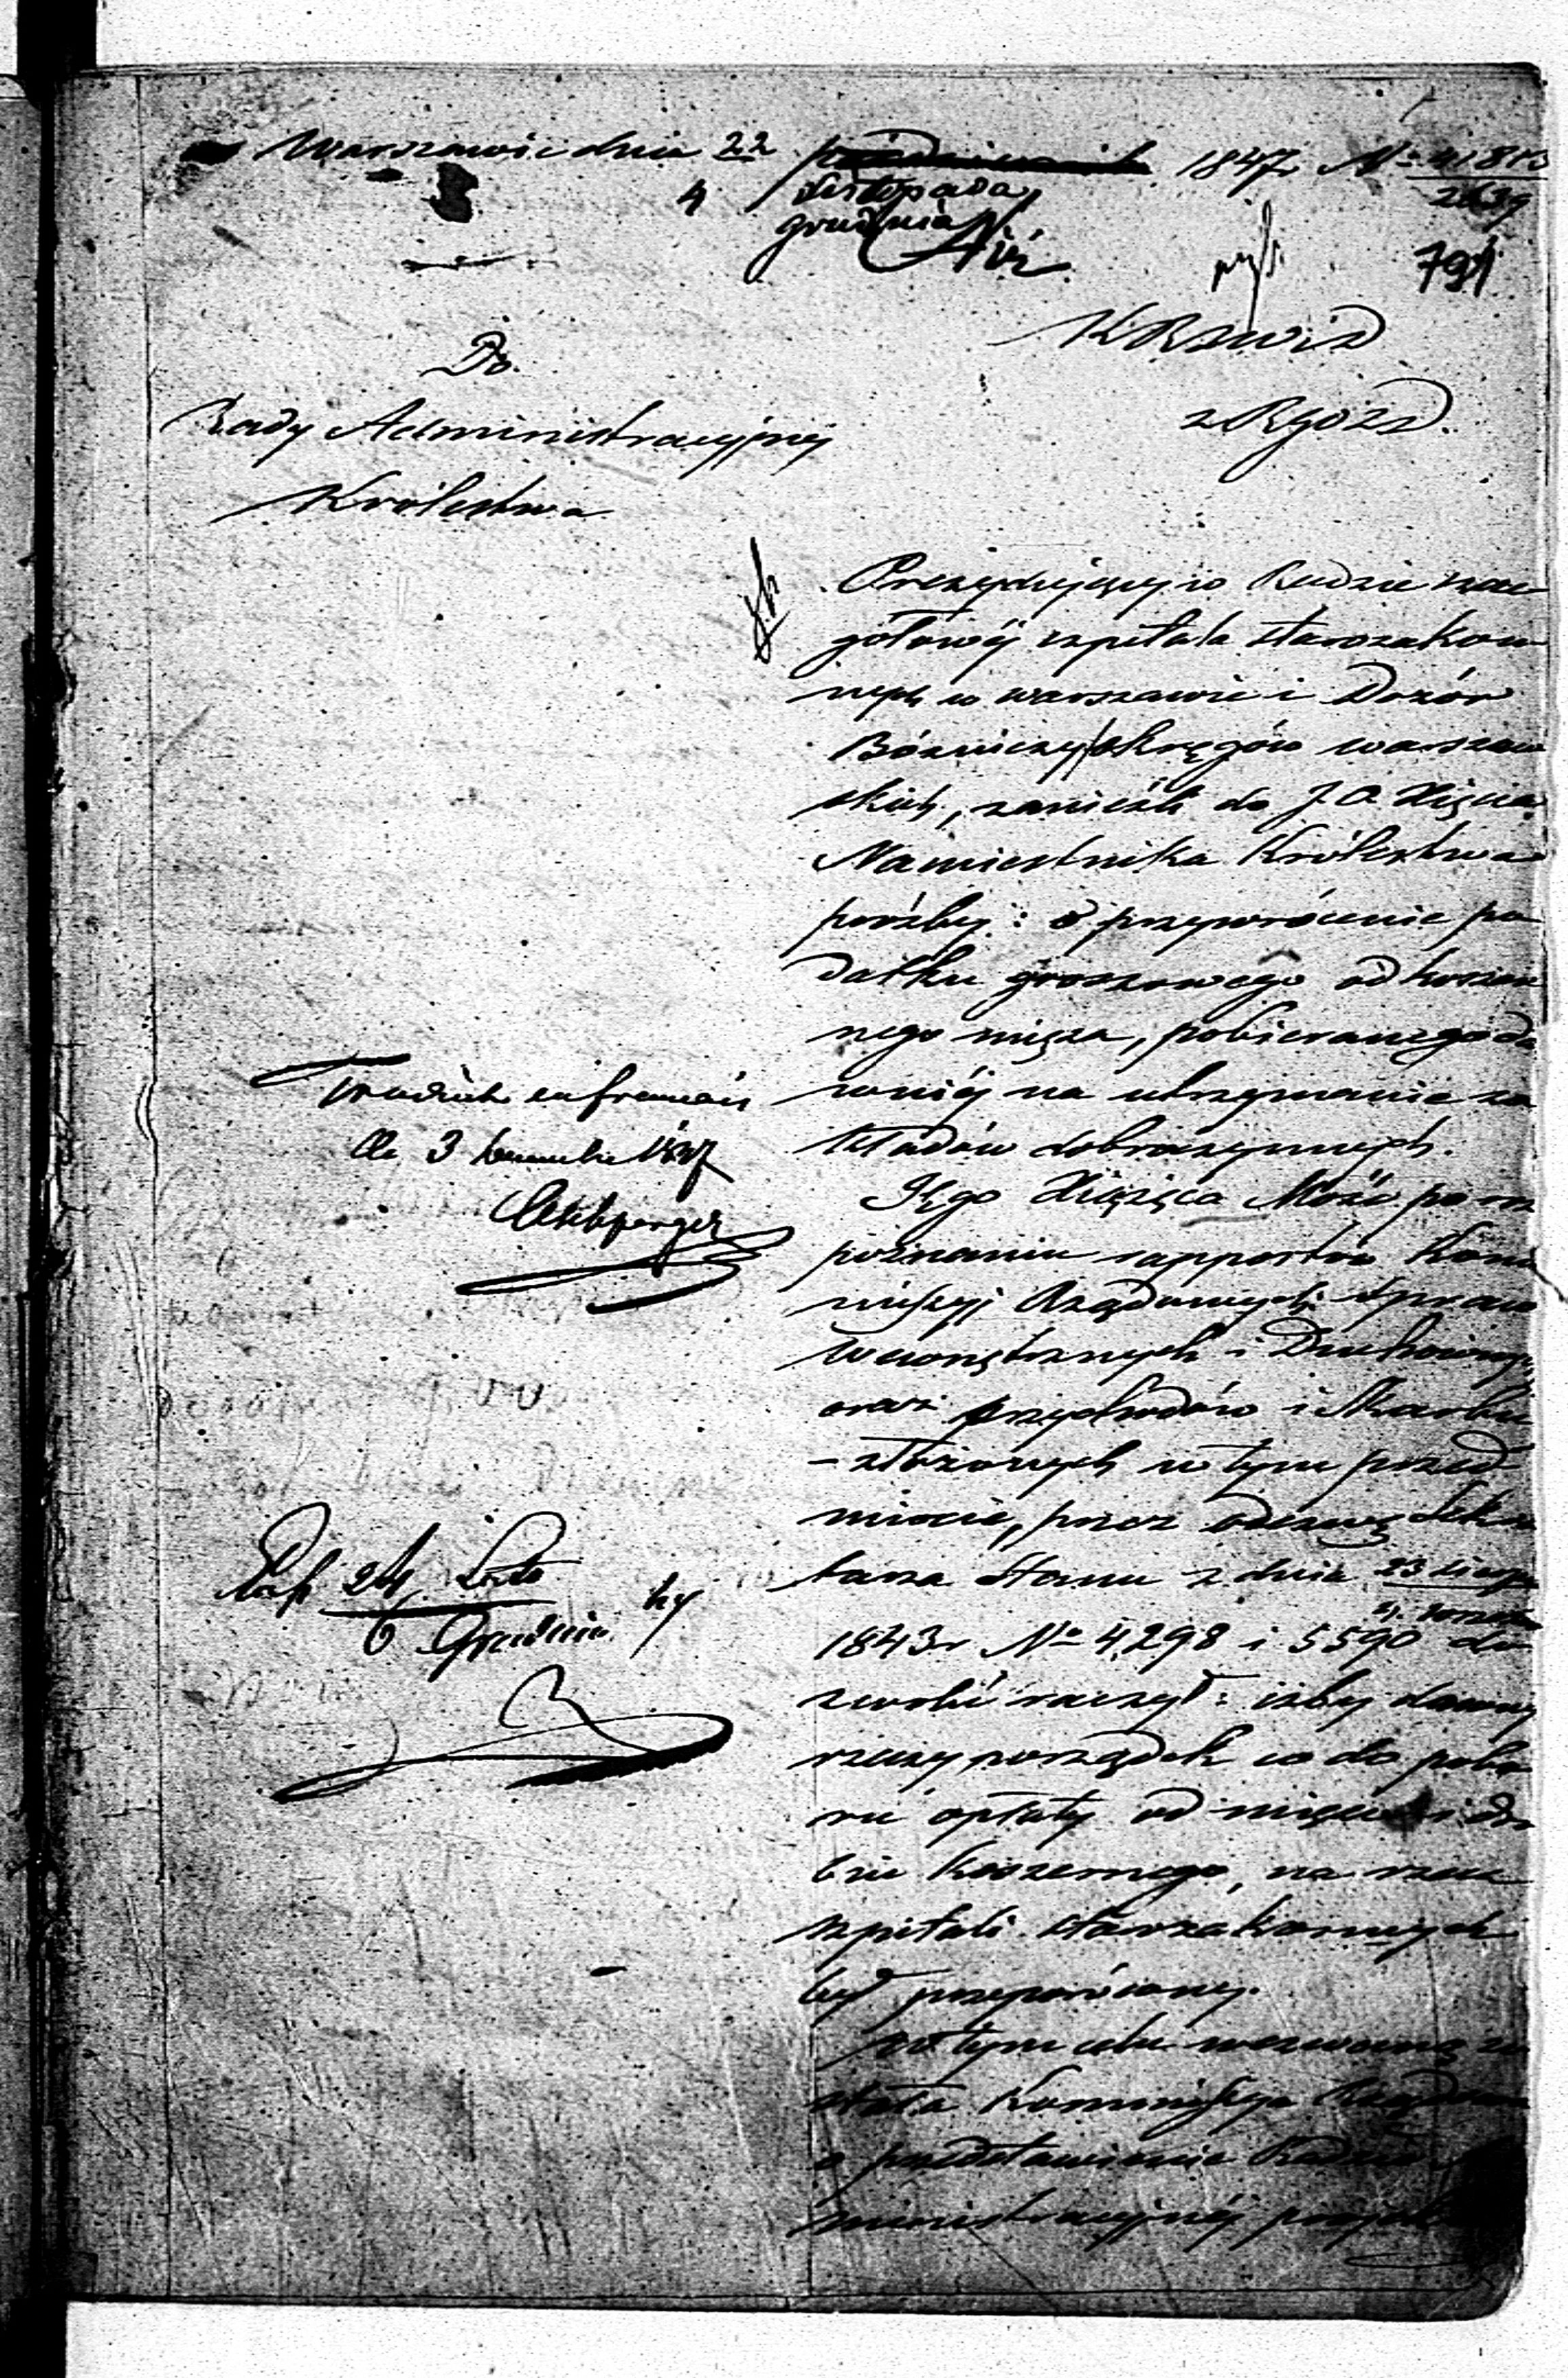 Warszawie dnia 22 1847 r. № 41813
4 Listopada 2639
grudnia
791
KRSWiD
Do
Rady Administracyjnej
Królestwa
Prezydujący w Radzie szcze-
gółowej szpitala starozakon-
nych w Warszawie i Dozór
Bóżniczy okręgów warszaw
skich, zanieśli do J.O. Xięcia
Namiestnika Królestwa
prośby: o przywrócenie po
datku groszowego od koszer
nego mięsa, pobieranego da
wniéj na utrzymanie za
kładów dobroczynnych.
Jego Xiążęca Mość po roz
poznaniu rapportów Kom
missyi Rządowych Spraw
Wewnętrznych i Duchownych
oraz Przychodów i Skarbu
– złożonych w tym przed
miocie, przez odezwę Sekre
tarza Stanu z dnia 23 sierp
wrześn
1843 r. № 4298 i 5590 do
zwolić raczył: iżby dawny
rzeczy porządek co do pobo
ru opłaty od mięsa i dro
biu koszernego, na rzecz
szpitali starozakonnych
był przywrócony.
W tym celu wezwaną zo
stała Kommissya Rządowa
o przedstawienie Radzie
ministracyjnéj projek
Traduit en français
le 3 1847
24 Listo
6 Grudnia 47